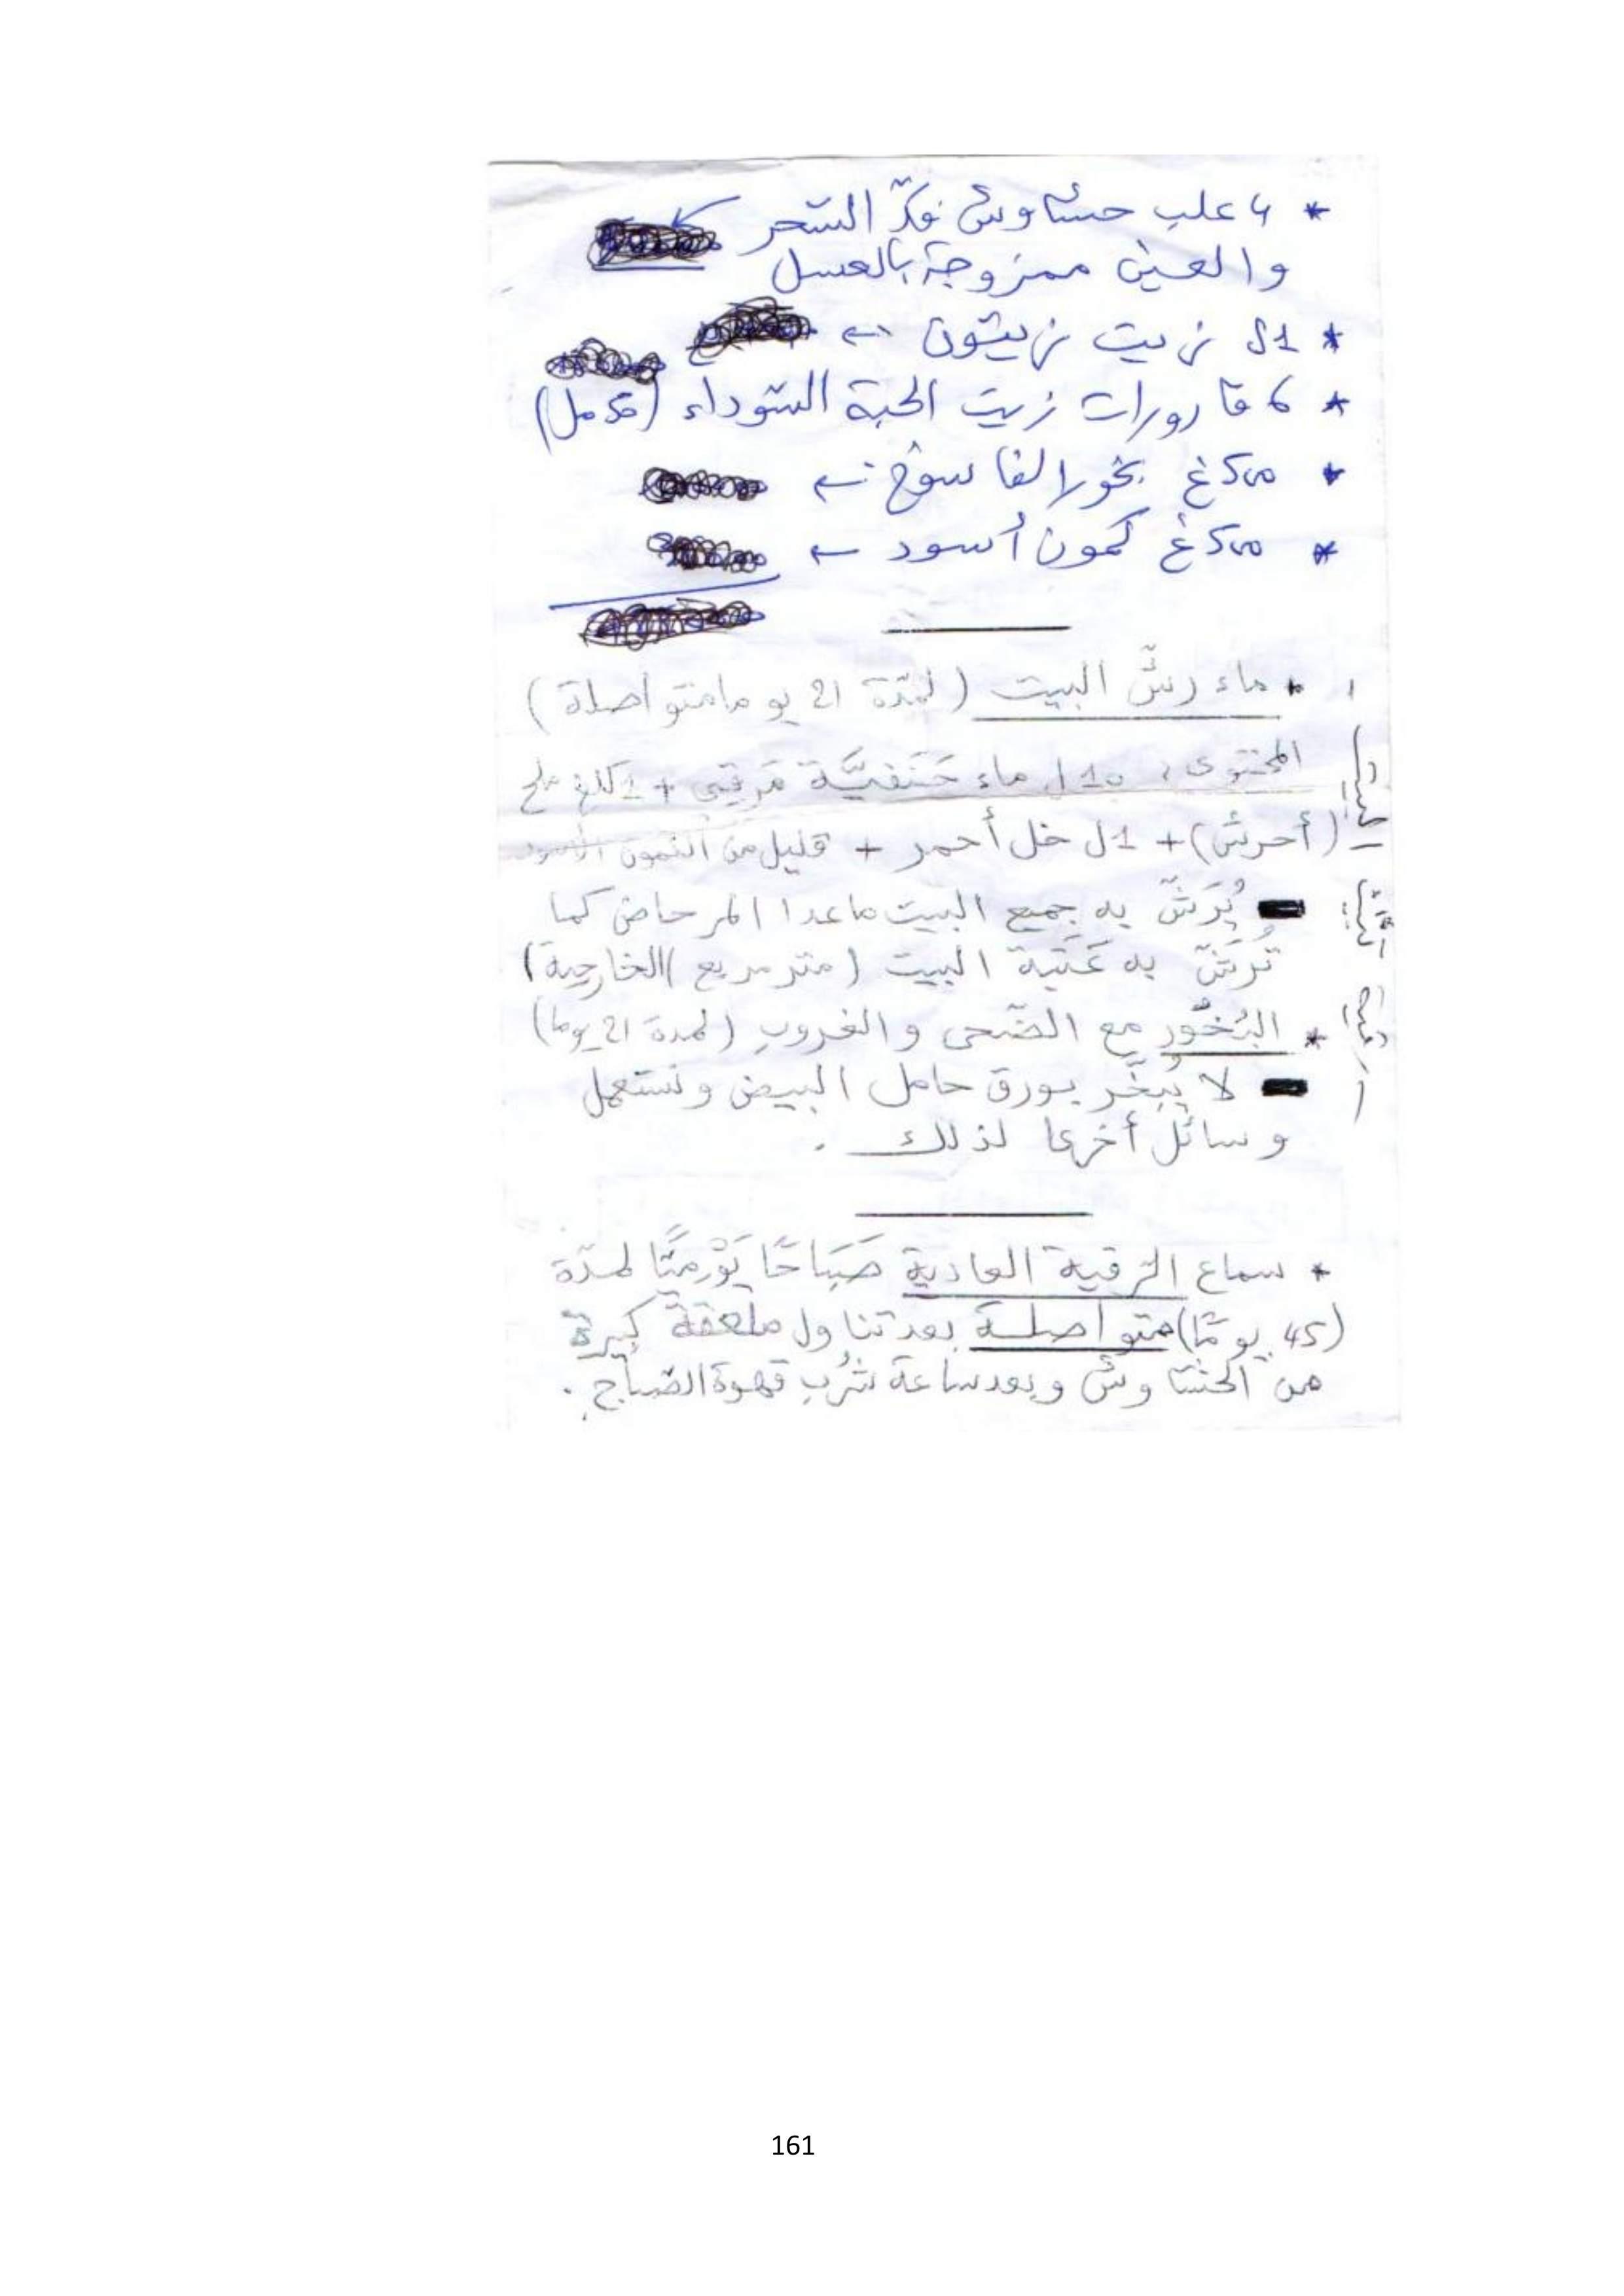 * 4 علب حشاوش فكّ السّحر
والعين ممزوجة بالعسل
* 1ل زيت زيتون ←
* 6 قارورات زيت الحبة السّوداء
* بخور الفاسوخ ←
* كمون أسود ←
* ماء رشّ البيت (لمدّة 21 يوما متواصلة)
المحتوى: 10 ل ماء حَنَفيَّة مَرقِي + 1 كلغ ملح
(أحرش) + 1ل خل أحمر + قليل من الكمون الأسود
- يُرَشّ به جميع البيت ماعدا المرحاض كما
تُرَشّ به عَتَبة البيت (متر مربع) الخارجية)
* البُخُور مع الضّحى والغروب (لمدة 21 يوما)
- لا يُبخَّر بورق حامل البيض ونستعمل
وسائل أخرى لذلك.
* سماع الرقية العادية صَبَاحًا يَوْمِيًّا لمدّة
(45 يومًا) متواصلة بعد تناول ملعقة كبيرة
من الحشاوش وبعد ساعة شُرب قهوة الصّباح.
161